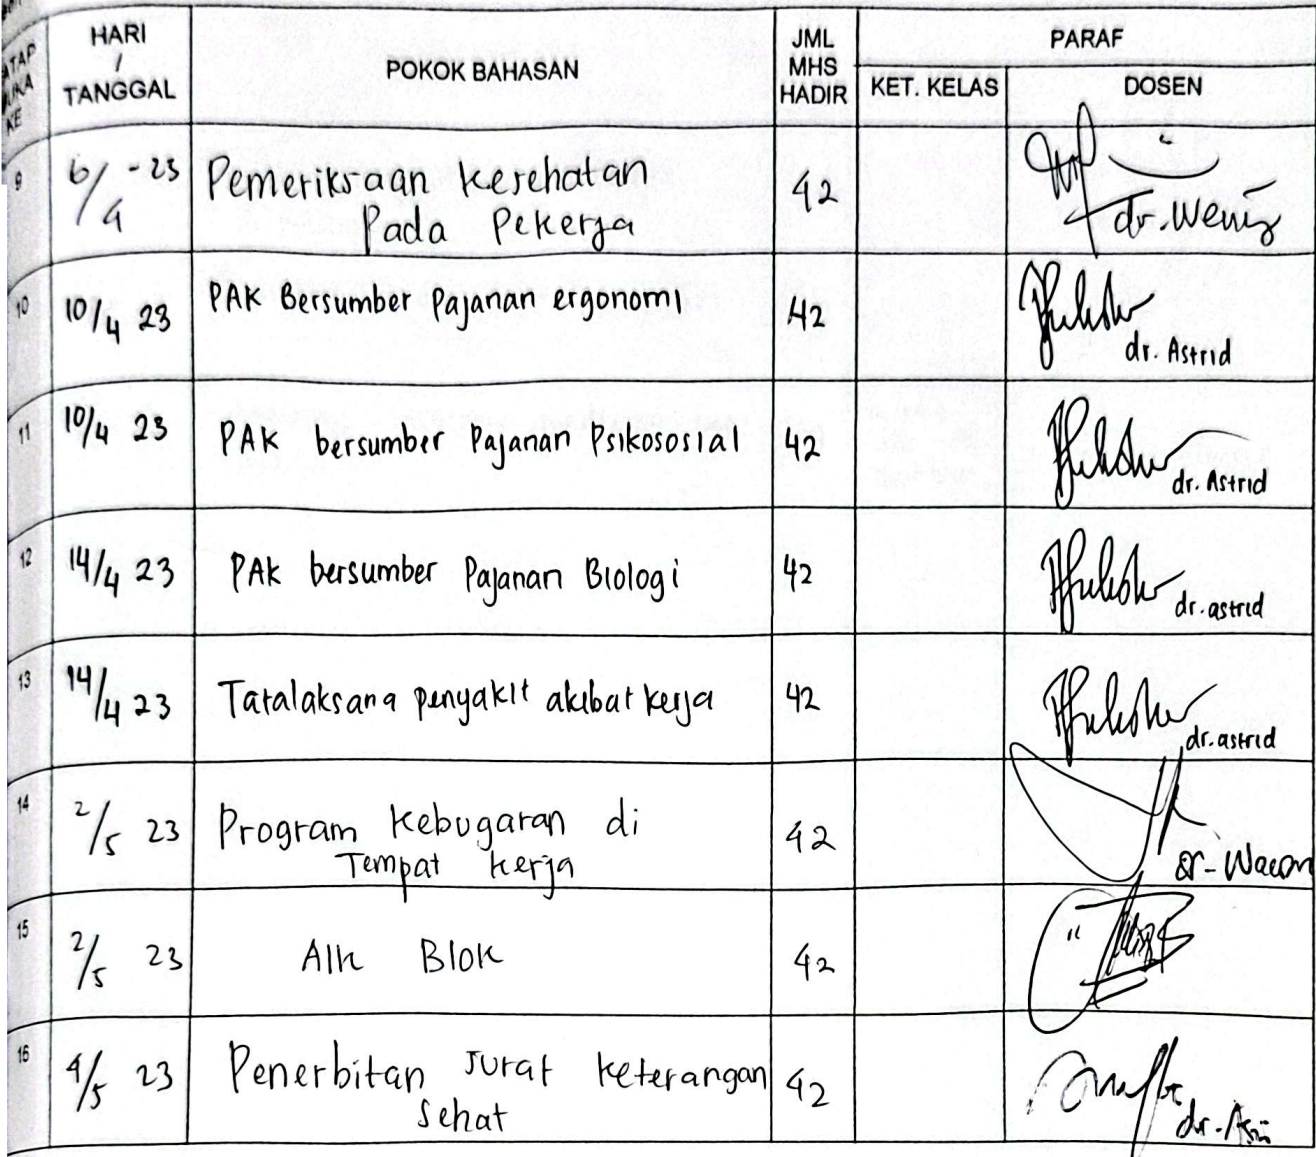 TATAP
MUKA
KE
HARI
/
TANGGAL
POKOK BAHASAN
JML
MHS
HADIR
PARAF
KET. KELAS
DOSEN
9
6/4 -23
Pemeriksaan kesehatan
Pada Pekerja
42
dr. Weniz
10
10/4 23
PAK Bersumber Pajanan ergonomi
42
dr. Astrid
11
10/4 23
PAK bersumber Pajanan Psikososial
42
dr. Astrid
12
14/4 23
PAK bersumber Pajanan Biologi
42
dr. astrid
13
14/4 23
Tatalaksana penyakit akibat kerja
42
dr. astrid
14
2/5 23
Program Kebugaran di
Tempat Kerja
42
15
2/5 23
Blok
42
16
4/5 23
Penerbitan surat keterangan
sehat
42